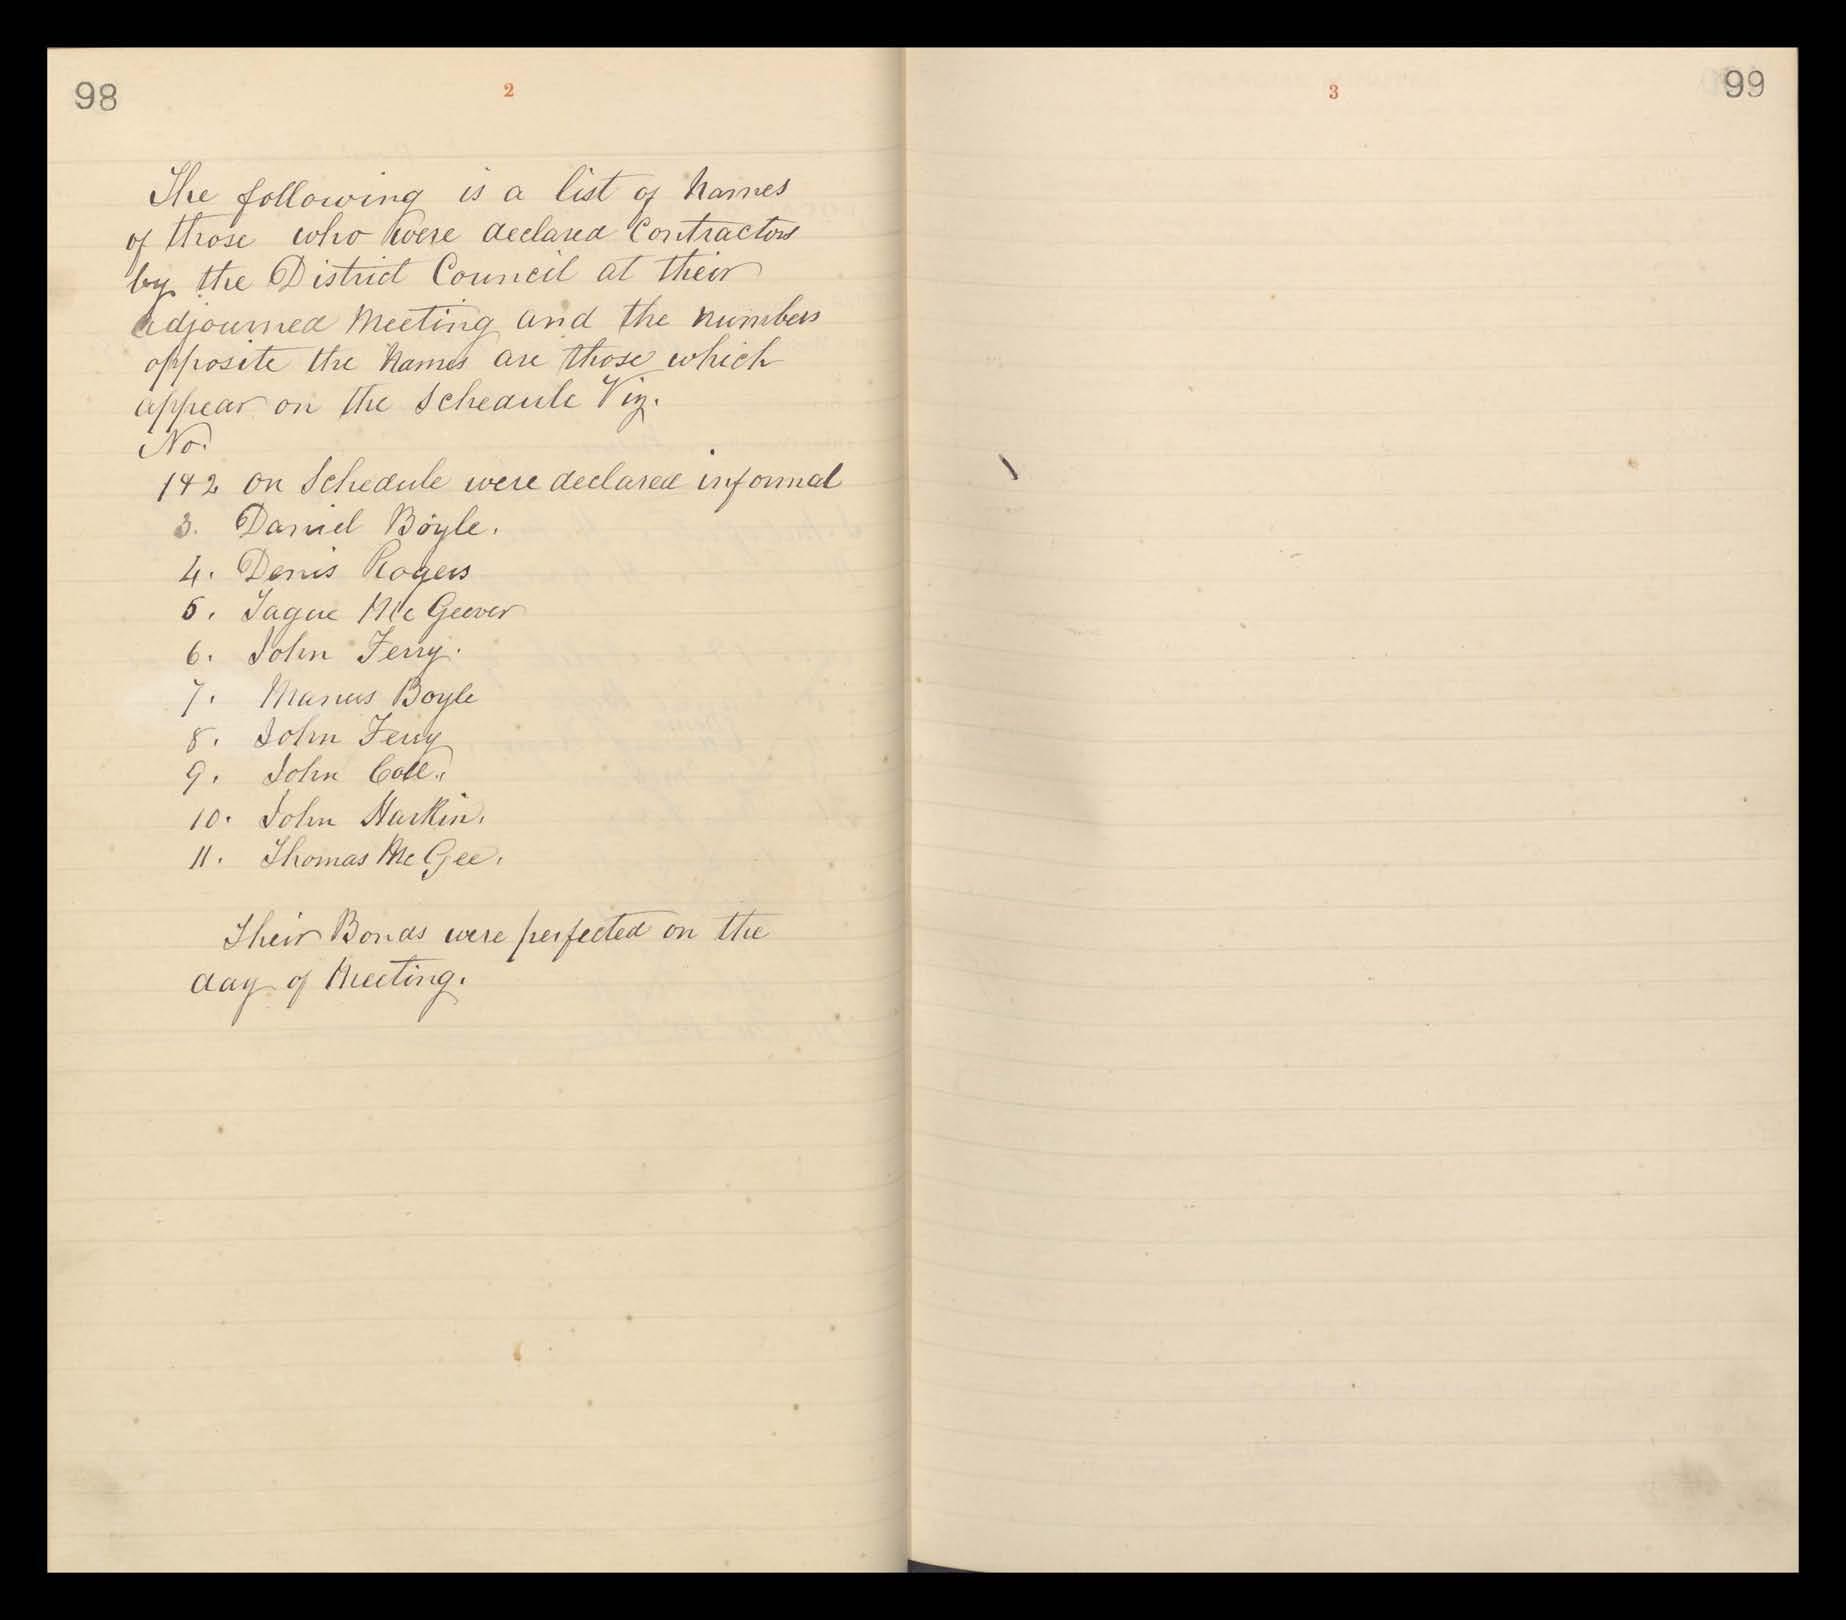 98
2
The following is a list of Names
of those who were declared Contractors
by the District Council at their
adjourned Meeting and the numbers
opposite the Names are those which
appear on the Schedule Viz.
No.
1 & 2 on Schedule were declared informal
3. Daniel Boyle.
4. Denis Rogers
5. Tague McGeever
6. John Ferry.
7. Manus Boyle
8. John Ferry
9. John Coll.
10. John Harkin.
11. Thomas McGee.
Their Bonds were perfected on the
day of Meeting.
3
99